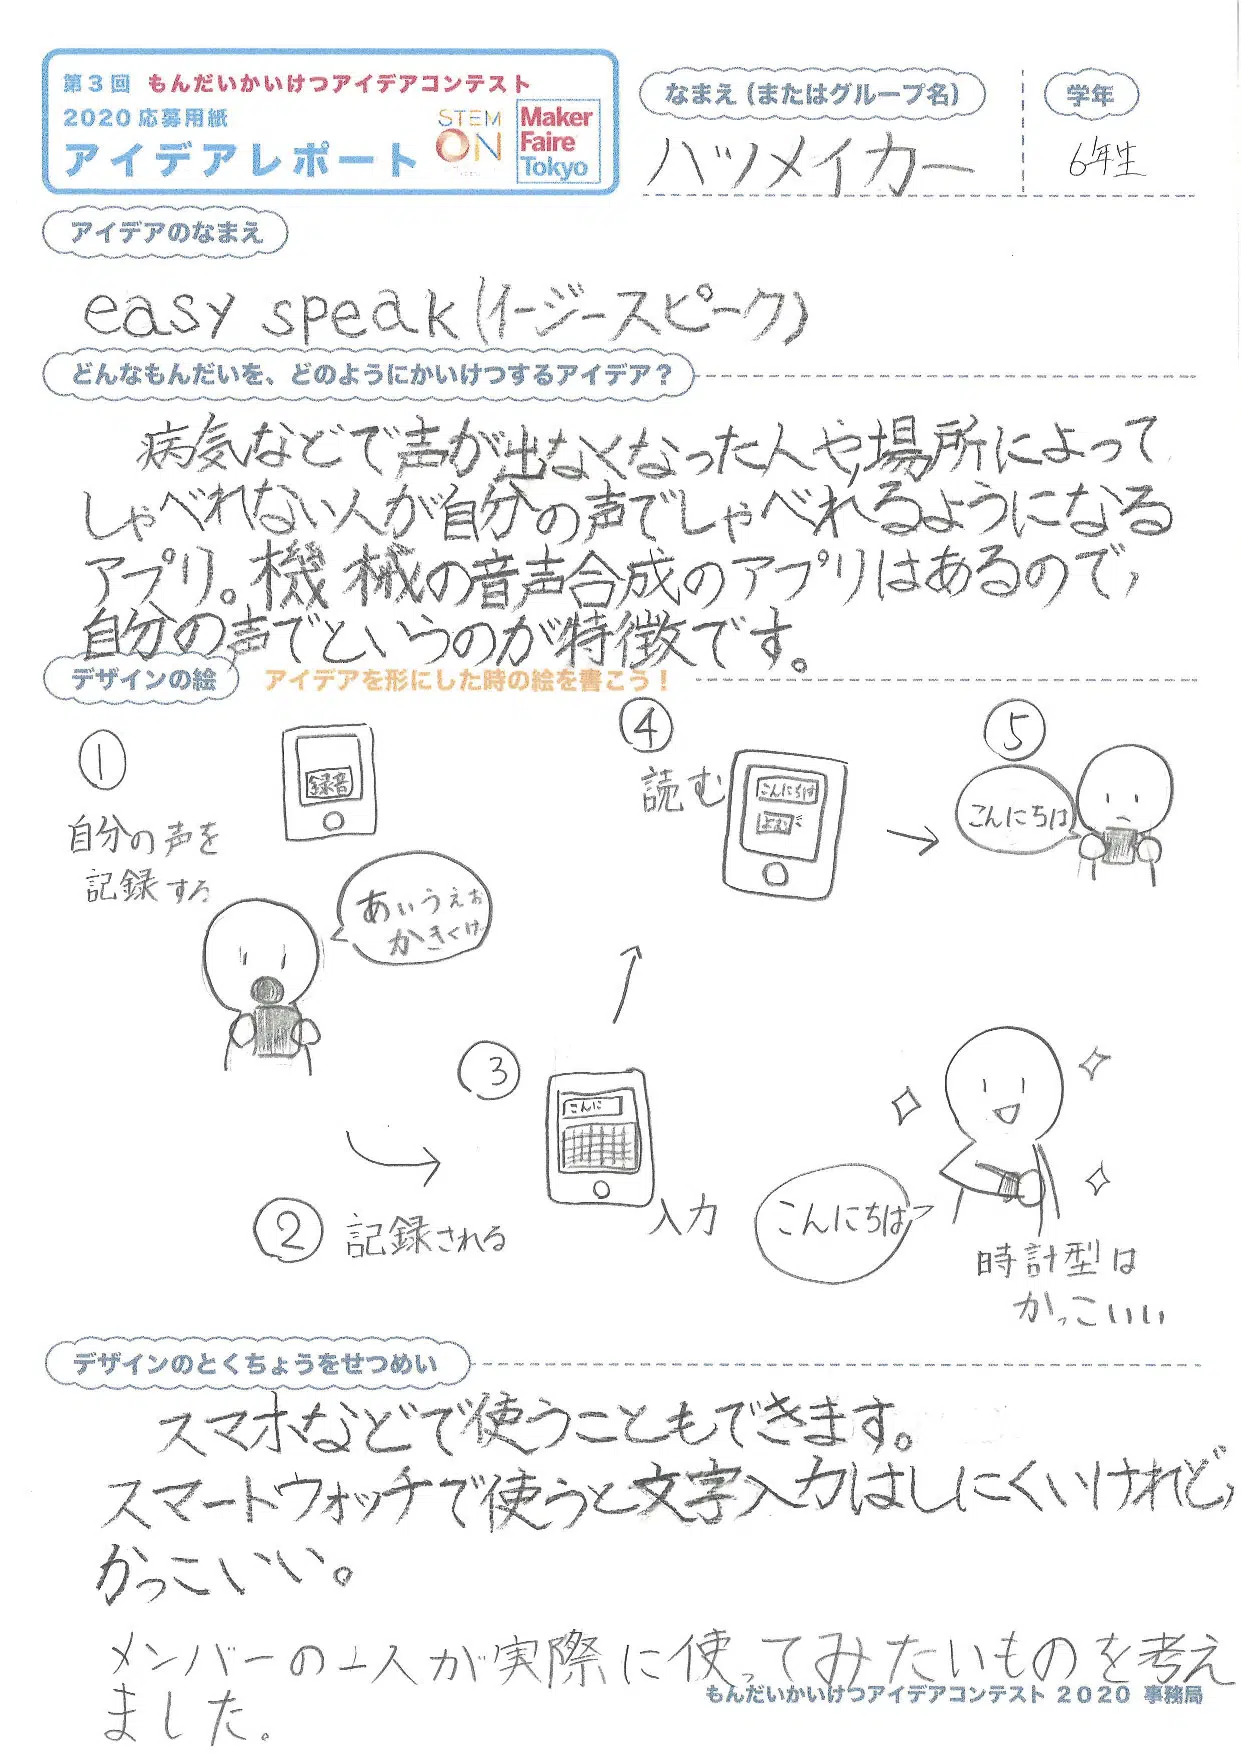 第3回 もんだいかいけつアイデアコンテスト
2020応募用紙
アイデアレポート
STEM
ON
Maker
Faire
Tokyo
なまえ(またはグループ名)
ハツメイカー
学年
6年生
アイデアのなまえ
easy speak(イージースピーク)
どんなもんだいを、どのようにかいけつするアイデア?
病気などで声が出なくなった人や,場所によって
しゃべれない人が自分の声でしゃべれるようになる
アプリ。機械の音声合成のアプリはあるので,
自分の声でというのが特徴です。
デザインの絵
アイデアを形にした時の絵を書こう!
①
自分の声を
記録する
録音
あいうえお
かきくけ
②
記録される
③
こんに
入力
④
読む
こんにちは
よむ
⑤
こんにちは
こんにちは
時計型は
かっこいい
デザインのとくちょうをせつめい
スマホなどで使うこともできます。
スマートウォッチで使うと文字入力はしにくいけれど,
かっこいい。
メンバーの1人が実際に使ってみたいものを考え
ました。
もんだいかいけつアイデアコンテスト2020 事務局